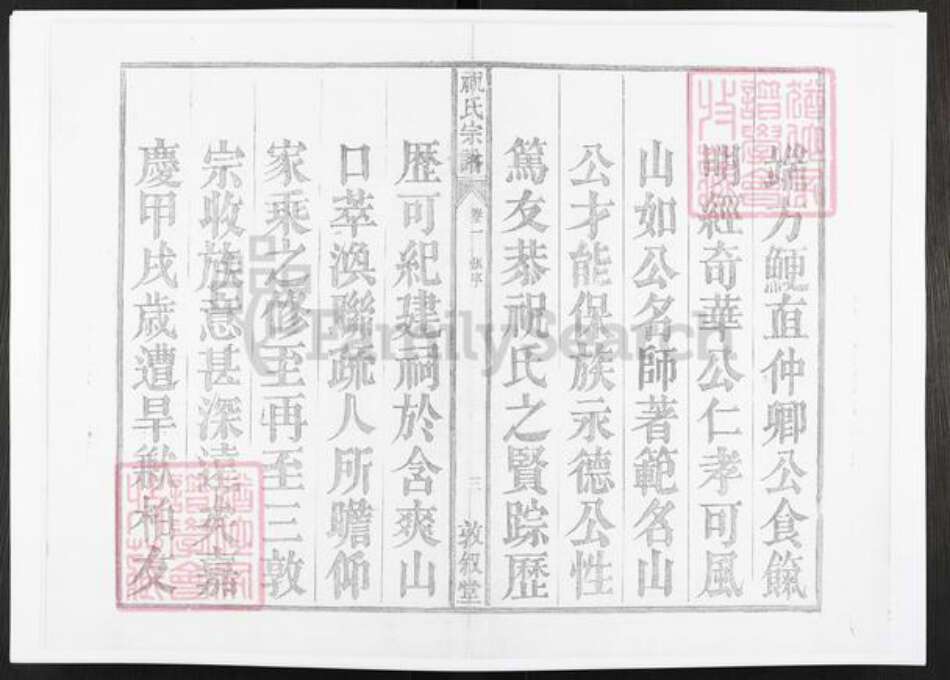 端方鯁直仲卿公食餼
明經奇華公仁孝可風
山如公名師著範名山
公才能保族永德公性
篤友恭祝氏之賢踪歷
祝氏宗譜 卷一 三 敦叙堂
歷可紀建祠於含爽山
口萃渙聯疏人所瞻仰
家乘之修至再至三敦
宗收族意甚深遠夫嘉
慶甲戌歲遭旱歉柏友
FamilySearch